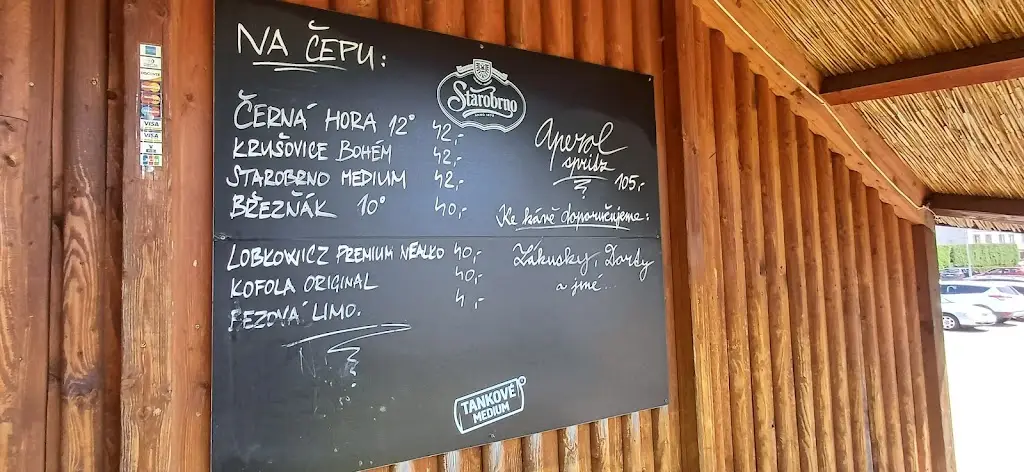 NA ČEPU:
ČERNÁ HORA 12° 42,-
KRUŠOVICE BOHÉM 42,-
STAROBRNO MEDIUM 42,-
BŘEZŇÁK 10° 40,-
LOBKOWICZ PREMIUM NEALKO 40,-
KOFOLA ORIGINAL 40,-
BEZOVÁ LIMO.
Starobrno
Aperol
spritz
105,-
Ke kávě doporučujeme:
Zákusky, Dorty
a jiné...
TANKOVÉ
MEDIUM
VISA
VISA